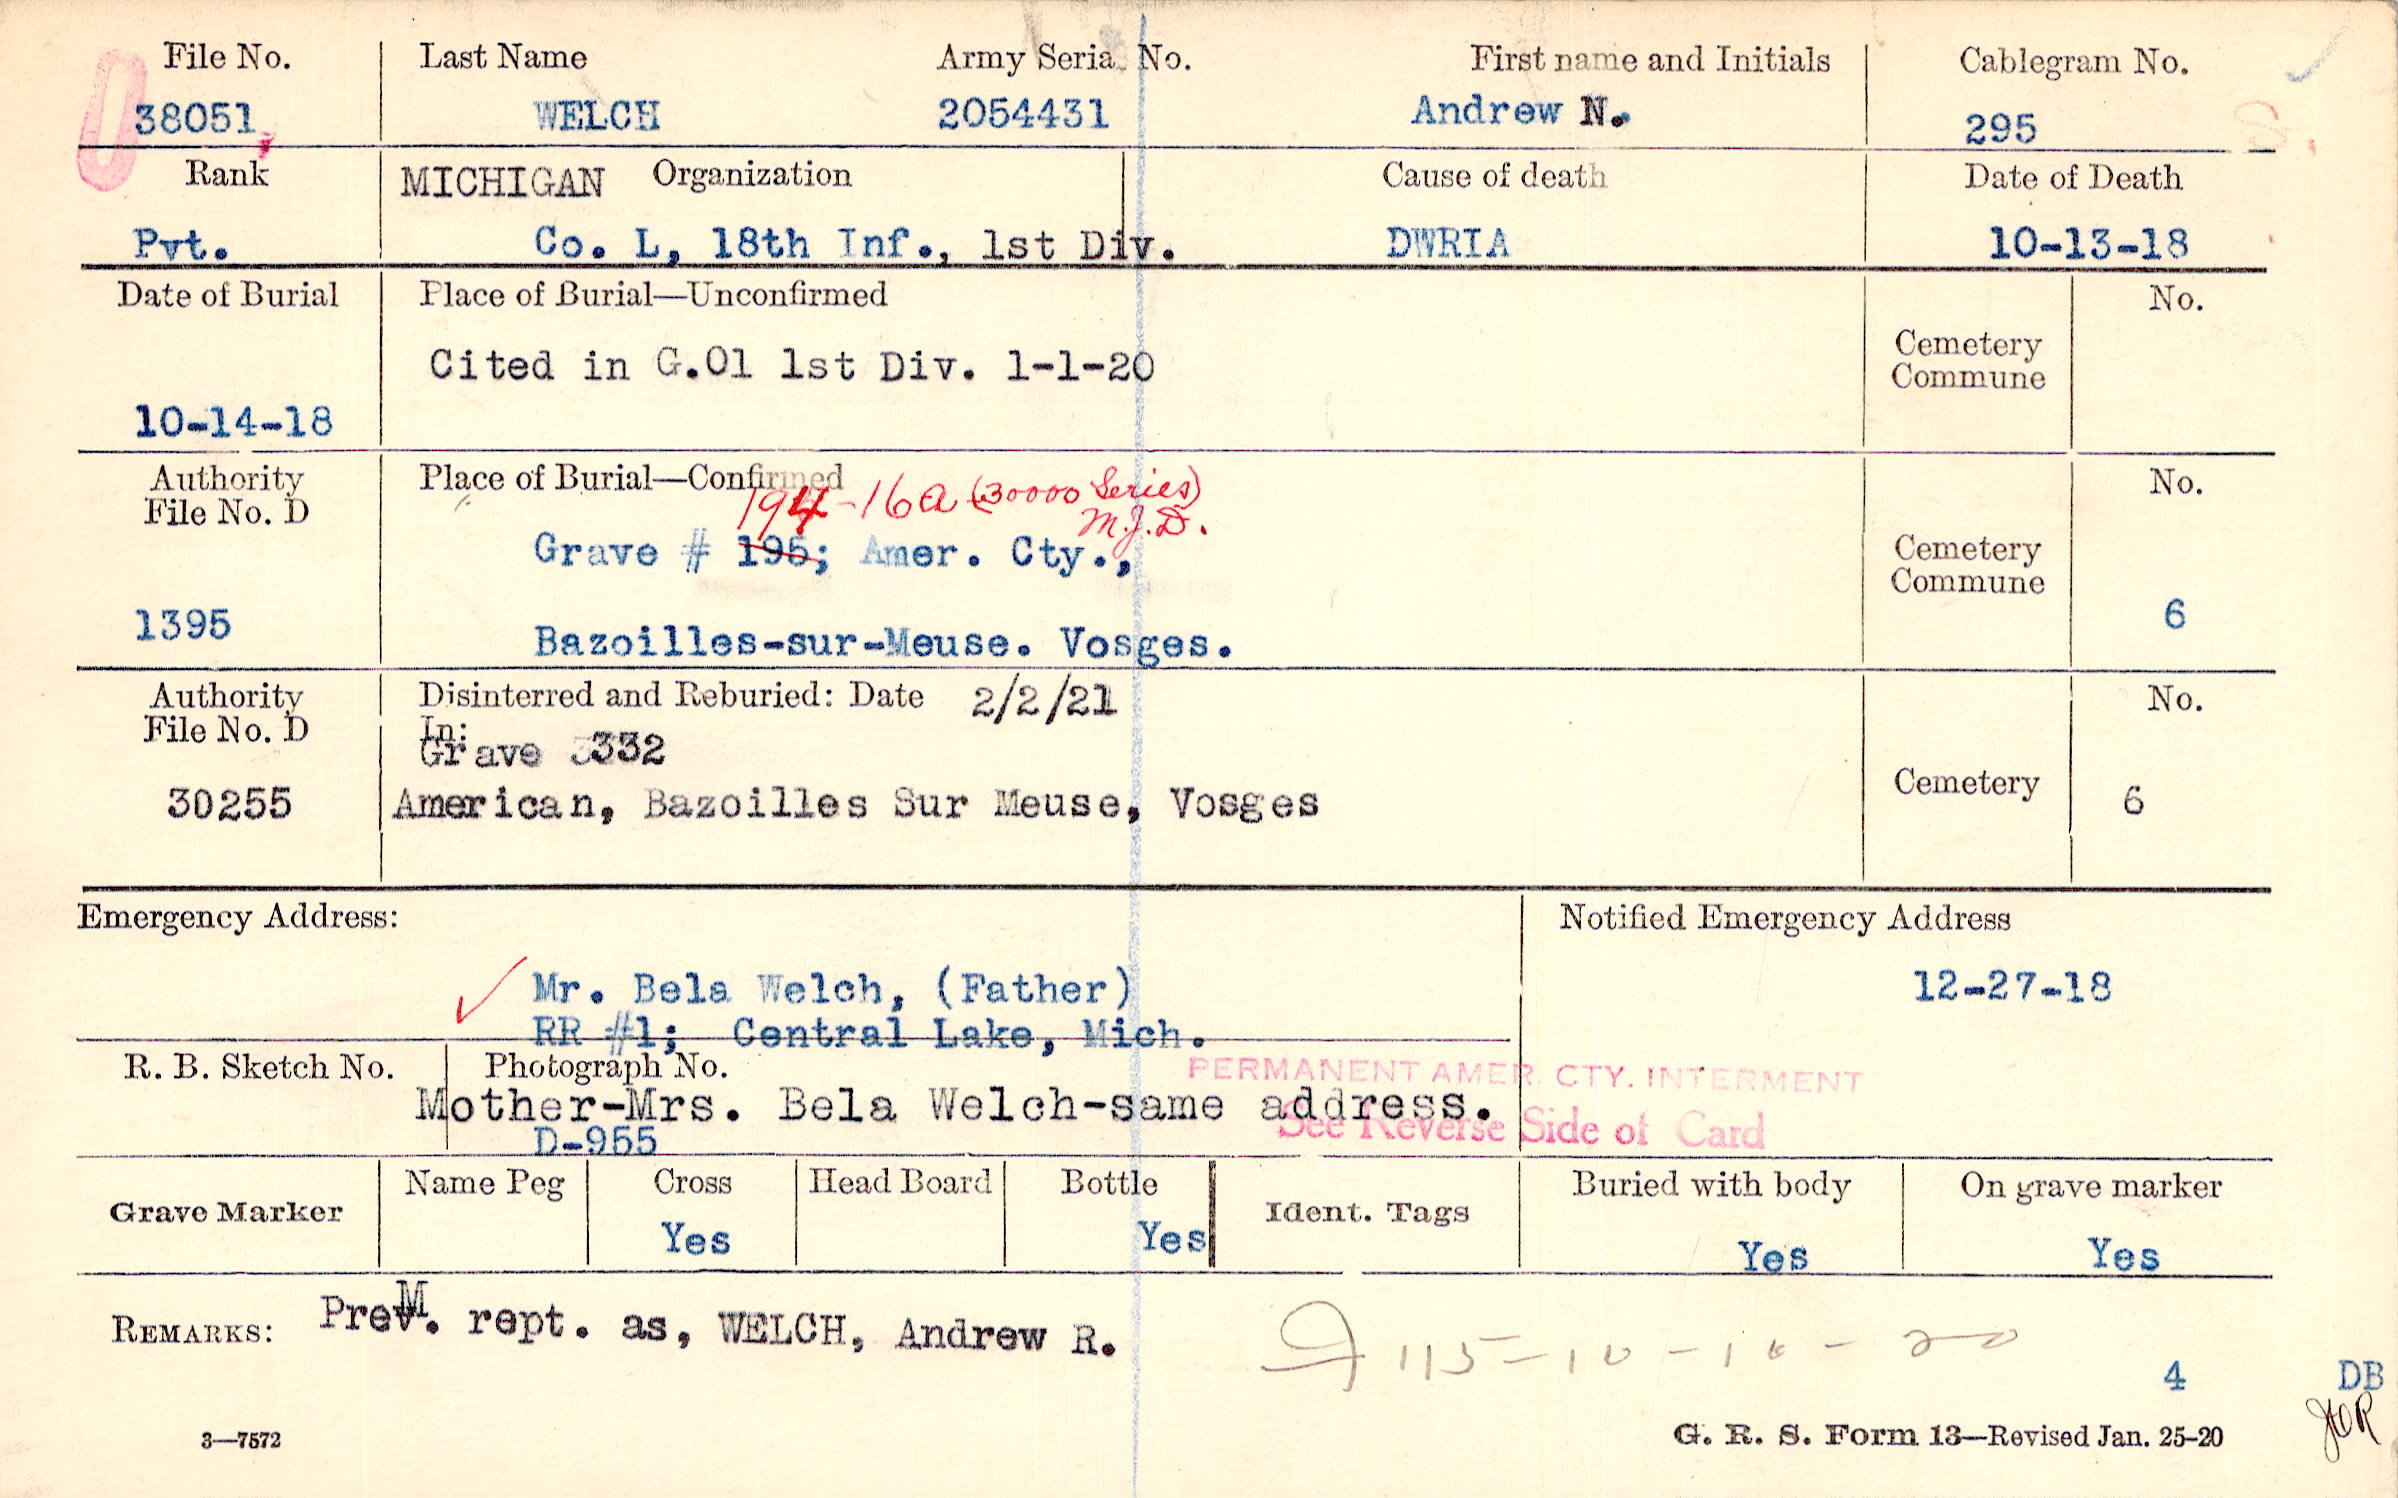 File No. Last Name Army Serial No. First name and Initials Cablegram No.
38051 WELCH 2054431 Andrew N. 295
Rank MICHIGAN Organization Cause of death Date of Death
Pvt. Co. L, 18th Inf., 1st Div. DWRIA 10-13-18
Date of Burial Place of Burial—Unconfirmed No.
Cemetery
Commune
Cited in G.O1 1st Div. 1-1-20
10-14-18
Authority
File No. D
Place of Burial—Confirmed No.
194-16A (30000 Series)
M.J.D.
Grave # 195; Amer. Cty.,
Cemetery
Commune
1395 Bazoilles-sur-Meuse. Vosges. 6
Authority
File No. D
Disinterred and Reburied: Date 2/2/21 No.
In:
Grave 3332
30255 American, Bazoilles Sur Meuse, Vosges Cemetery 6
Emergency Address: Notified Emergency Address
Mr. Bela Welch, (Father) 12-27-18
RR #1; Central Lake, Mich.
R. B. Sketch No. Photograph No.
PERMANENT AMER. CTY. INTERMENT
Mother-Mrs. Bela Welch-same address.
See Reverse Side of Card
D-955
Grave Marker Name Peg Cross Head Board Bottle Ident. Tags Buried with body On grave marker
Yes Yes Yes Yes
REMARKS: Prev. rept. as, WELCH, Andrew R.
M
4 DB
3—7572 G. R. S. Form 13—Revised Jan. 25-20